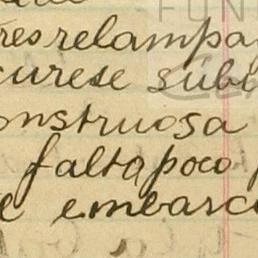 FUN
res relampa
curese súbi
onstruosa
falta poco
e embarc